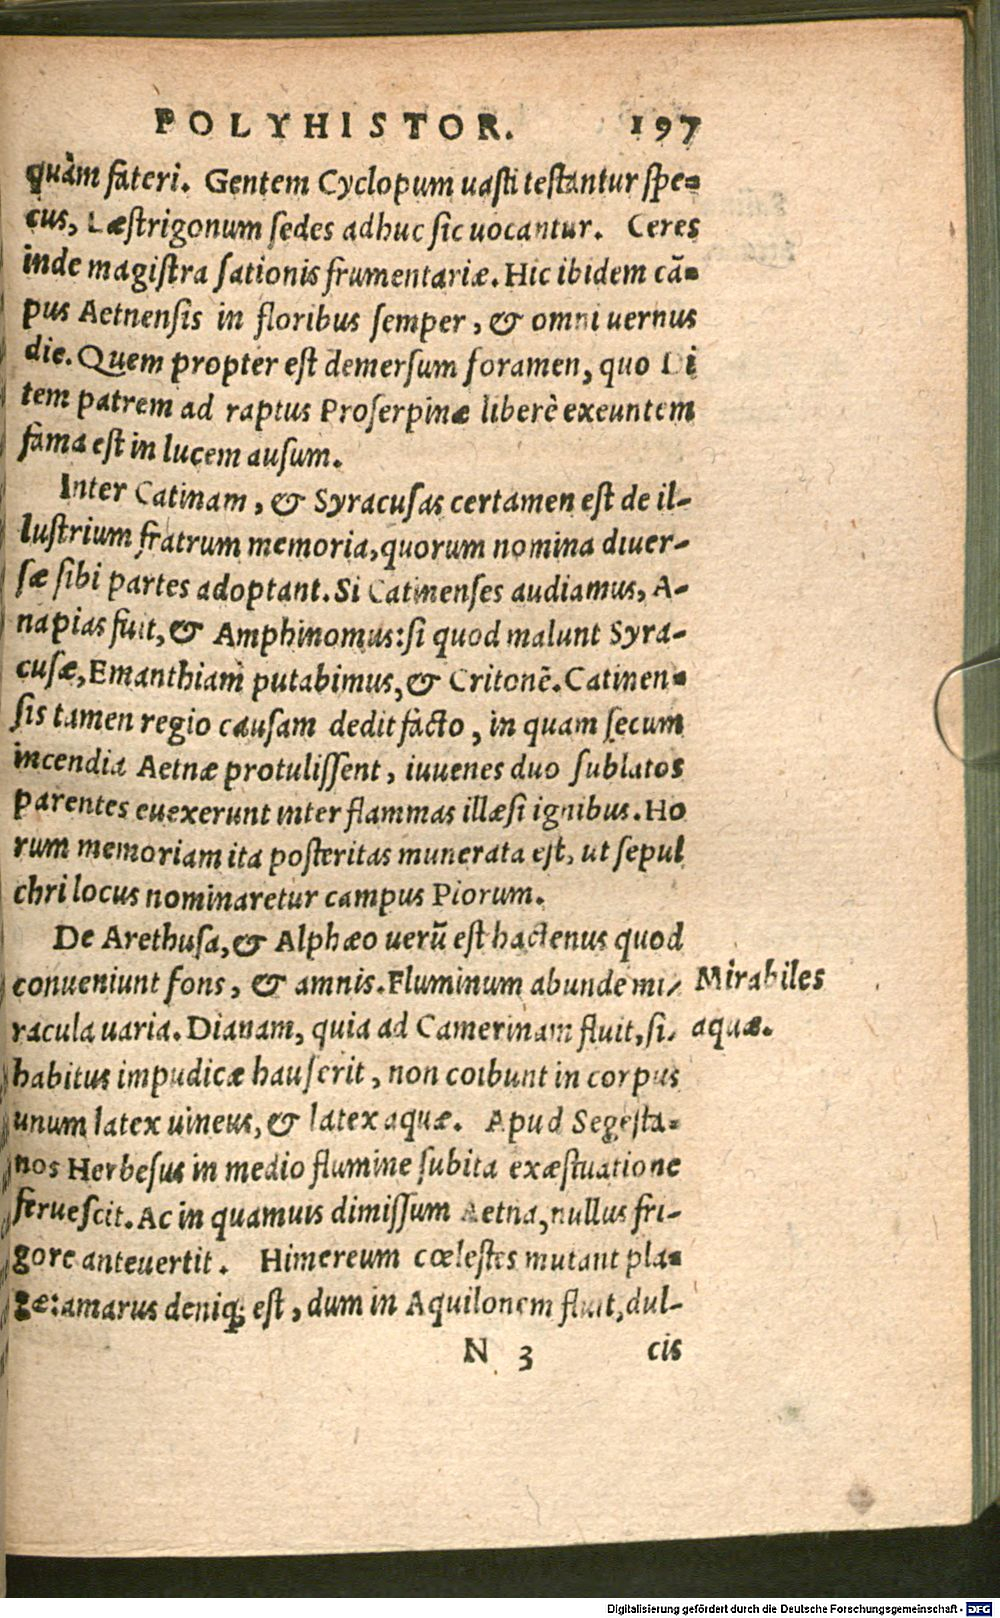 POLYHISTOR. 197
quàm fateri. Gentem Cyclopum uasti testantur spe-
cus, Læstrigonum sedes adhuc sic uocantur. Ceres
inde magistra sationis frumentariæ. Hic ibidem cā-
pus Aetnensis in floribus semper, & omni uernus
die. Quem propter est demersum foramen, quo Di
tem patrem ad raptus Proserpinæ liberè exeuntem
fama est in lucem ausum.
Inter Catinam, & Syracusas certamen est de il-
lustrium fratrum memoria, quorum nomina diuer-
sæ sibi partes adoptant. Si Catinenses audiamus, A-
napias fuit, & Amphinomus: si quod malunt Syra-
cusæ, Emanthiam putabimus, & Critonē. Catinen-
sis tamen regio causam dedit facto, in quam secum
incendia Aetnæ protulissent, iuuenes duo sublatos
parentes euexerunt inter flammas illæsi ignibus. Ho
rum memoriam ita posteritas munerata est, ut sepul
chri locus nominaretur campus Piorum.
De Arethusa, & Alphæo uerū est hactenus quod
conueniunt fons, & amnis. Fluminum abunde mi-
racula uaria. Dianam, quia ad Camerinam fluit, si-
habitus impudicæ hauserit, non coibunt in corpus
unum latex uineus, & latex aquæ. Apud Segesta-
nos Herbesus in medio flumine subita exæstuatione
feruescit. Ac in quamuis dimissum Aetna, nullus fri-
gore anteuertit. Himereum cœlestes mutant pla-
gæ: amarus deniq; est, dum in Aquilonem fluit, dul-
N 3 cis
Mirabiles
aquæ.
Digitalisierung gefördert durch die Deutsche Forschungsgemeinschaft - DFG